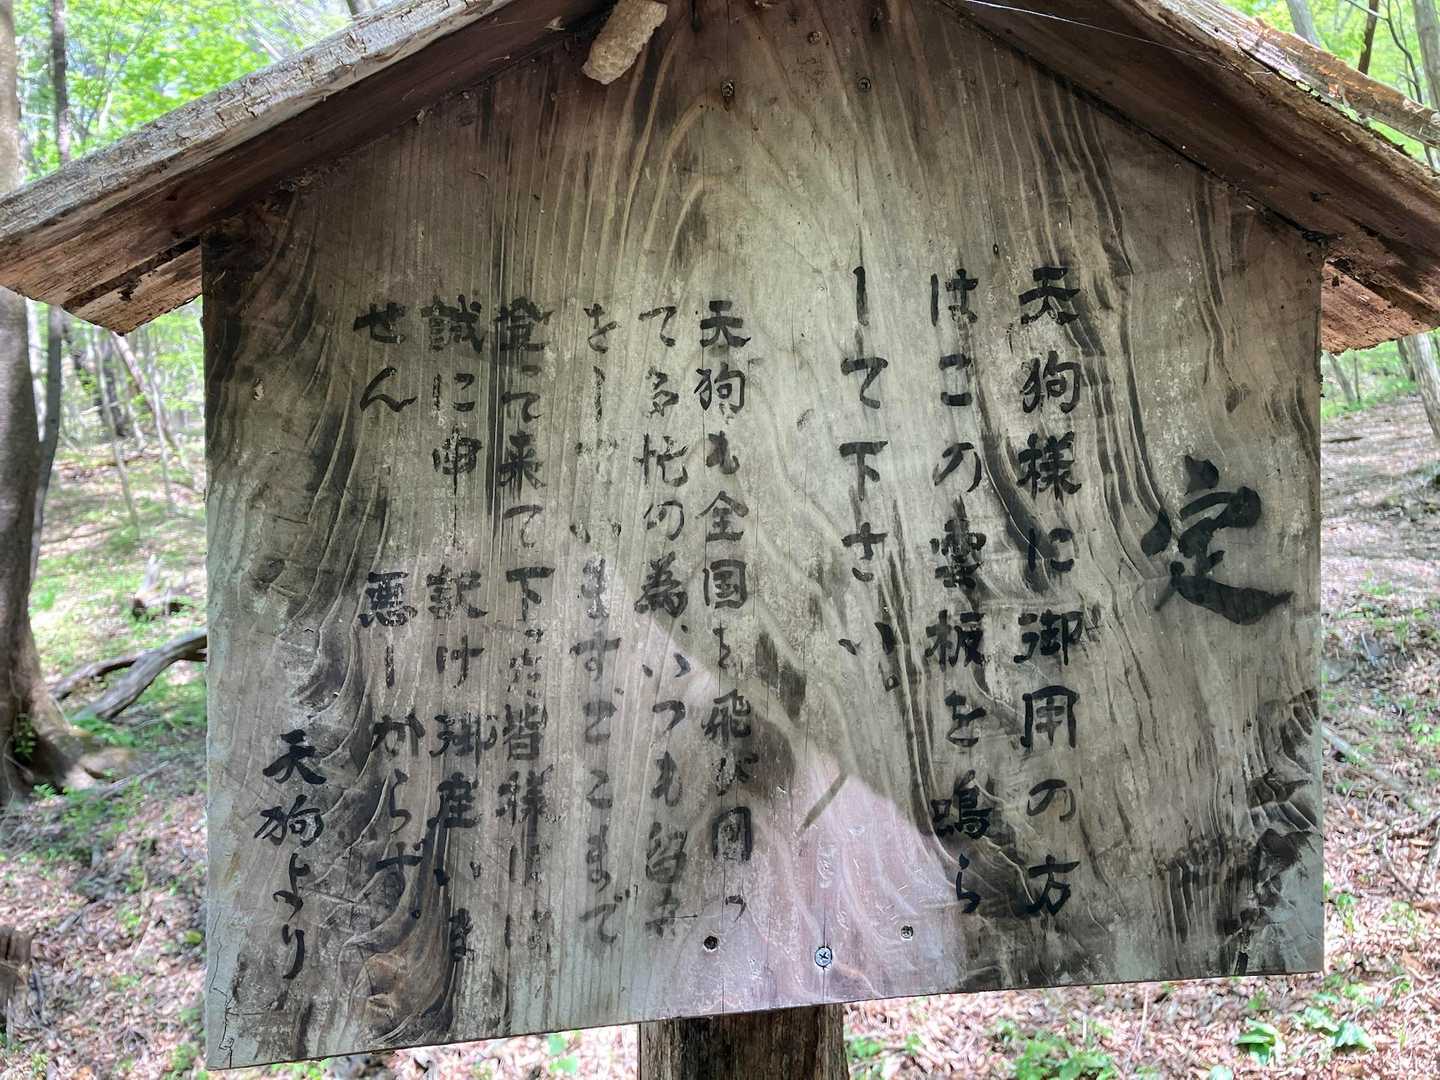 定
天狗様に御用の方
はこの雲板を鳴ら
して下さい。
天狗も全国を飛び回っ
て多忙の為、いつも留守
をしています。ここまで
登って来て下った皆様には
誠に申し訳け御座いま
せん 悪しからず。
天狗より